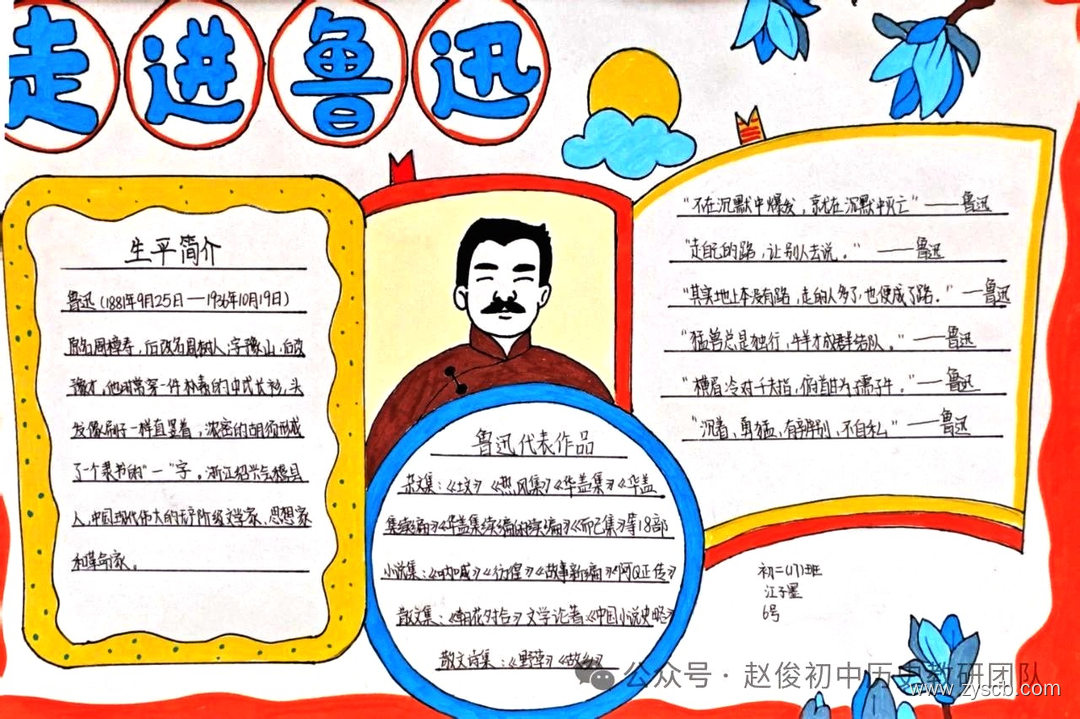 走进鲁迅
生平简介
鲁迅(1881年9月25日——1936年10月19日)
原名周樟寿,后改名周树人,字豫山,后改
豫才,他时常穿一件朴素的中式长衫,头
发像刷子一样直竖着,浓密的胡须形成
了一个隶书的"一"字。浙江绍兴会稽县
人,中国现代伟大的无产阶级文学家、思想家
和革命家。
鲁迅代表作品
杂文集:《坟》《热风集》《华盖集》《华盖
集续编》《华盖集续编的续编》《而已集》等18部
小说集:《呐喊》《彷徨》《故事新编》《阿Q正传》
散文集:《朝花夕拾》文学论著《中国小说史略》
散文诗集:《野草》《故乡》
"不在沉默中爆发,就在沉默中灭亡"——鲁迅
"走自己的路,让别人去说。"——鲁迅
"其实地上本没有路,走的人多了,也便成了路。"——鲁迅
"猛兽总是独行,牛羊才成群结队。"——鲁迅
"横眉冷对千夫指,俯首甘为孺子牛。"——鲁迅
"沉着、勇猛,有辨别,不自私"——鲁迅
初二(17)班
江子墨
6号
公众号·赵俊初中历史教研团队
www.zyscb.com